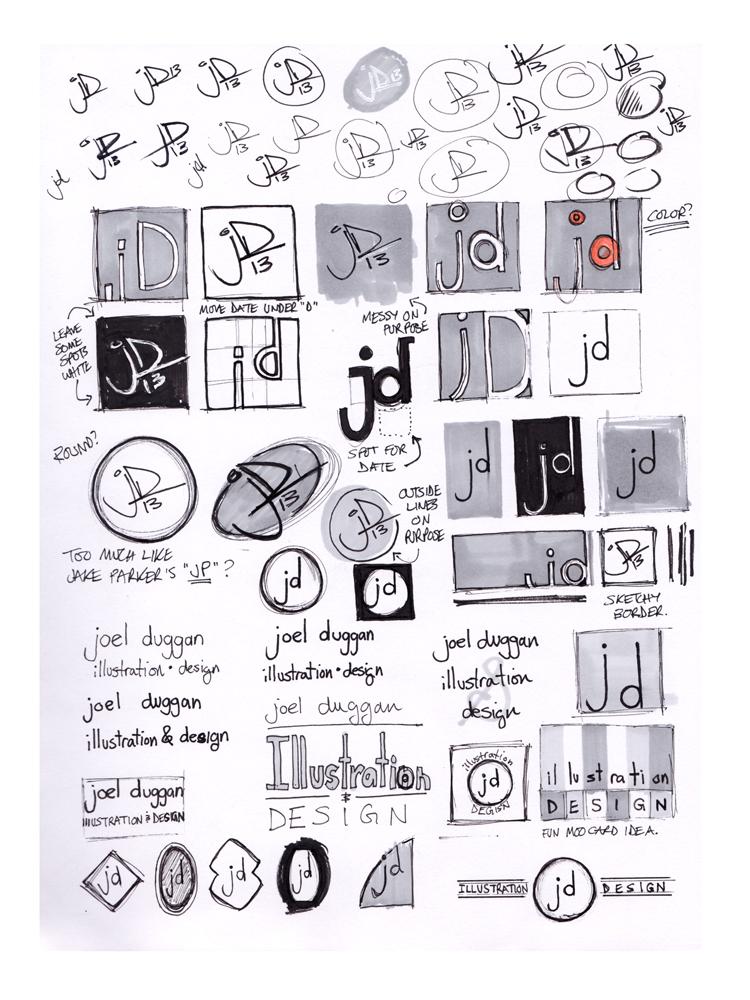 jD
jD 13
jD 13
jD 13
jD 13
jD 13
jD 13
jD 13
jd
jD 13
jD 13
jd
jD 13
jD
jD 13
jD 13
jD 13
jD 13
jD 13
jD 13
jD 13
jD
jD 13
jD 13
jd
jd
COLOR?
MOVE DATE UNDER "D"
MESSY ON
PURPOSE
LEAVE
SOME
SPOTS
WHITE
jD 13
jd
jd
jD
jd
SPOT FOR
DATE
ROUND?
jD 13
jD 13
jD 13
OUTSIDE
LINES
ON
PURPOSE
jd
jd
jd
TOO MUCH LIKE
JAKE PARKER'S "JP"?
jd
jd
jd
jD 13
SKETCHY
BORDER.
joel duggan
illustration • design
joel duggan
illustration • design
joel duggan
illustration
design
jd
joel duggan
illustration & design
joel duggan
Illustration
&
DESIGN
illustration
jd
DEGISN
il lu st ra ti on
DESIGN
FUN MOO CARD IDEA.
joel duggan
ILLUSTRATION & DESIGN
jd
jd
jd
jd
jd
ILLUSTRATION jd DESIGN